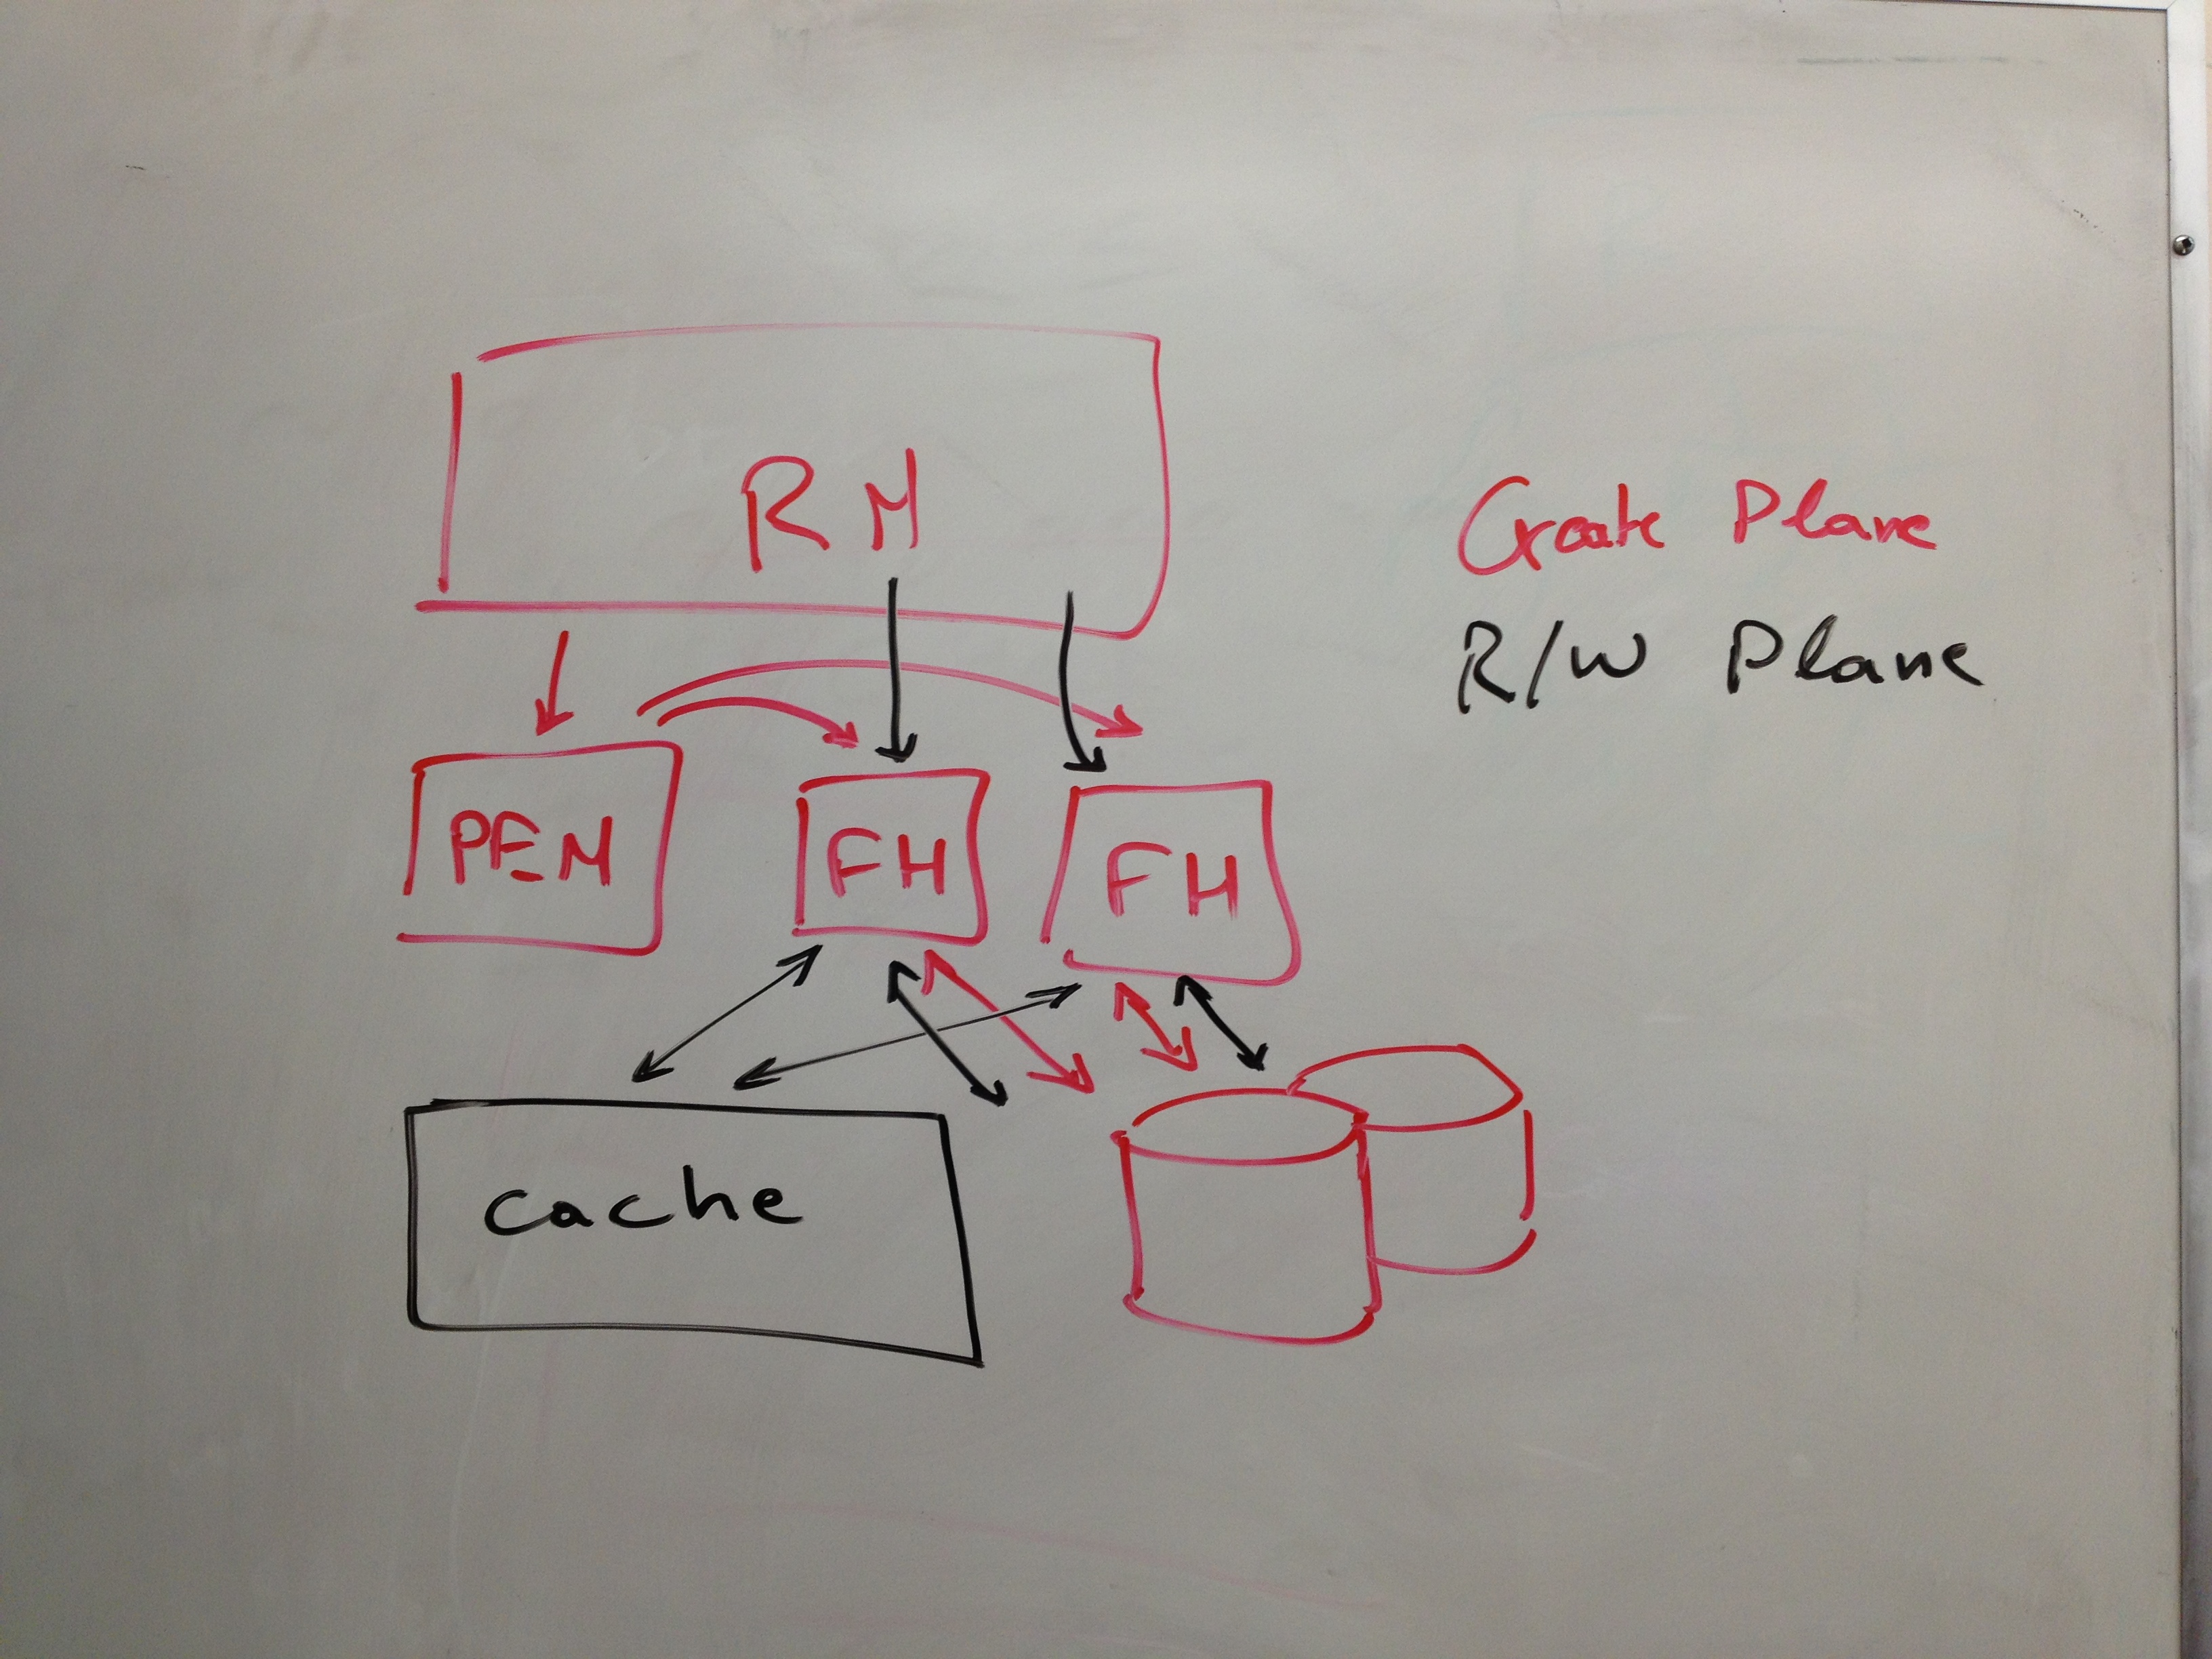 RM
Create Plane
R/W Plane
PFM
FH
FH
cache